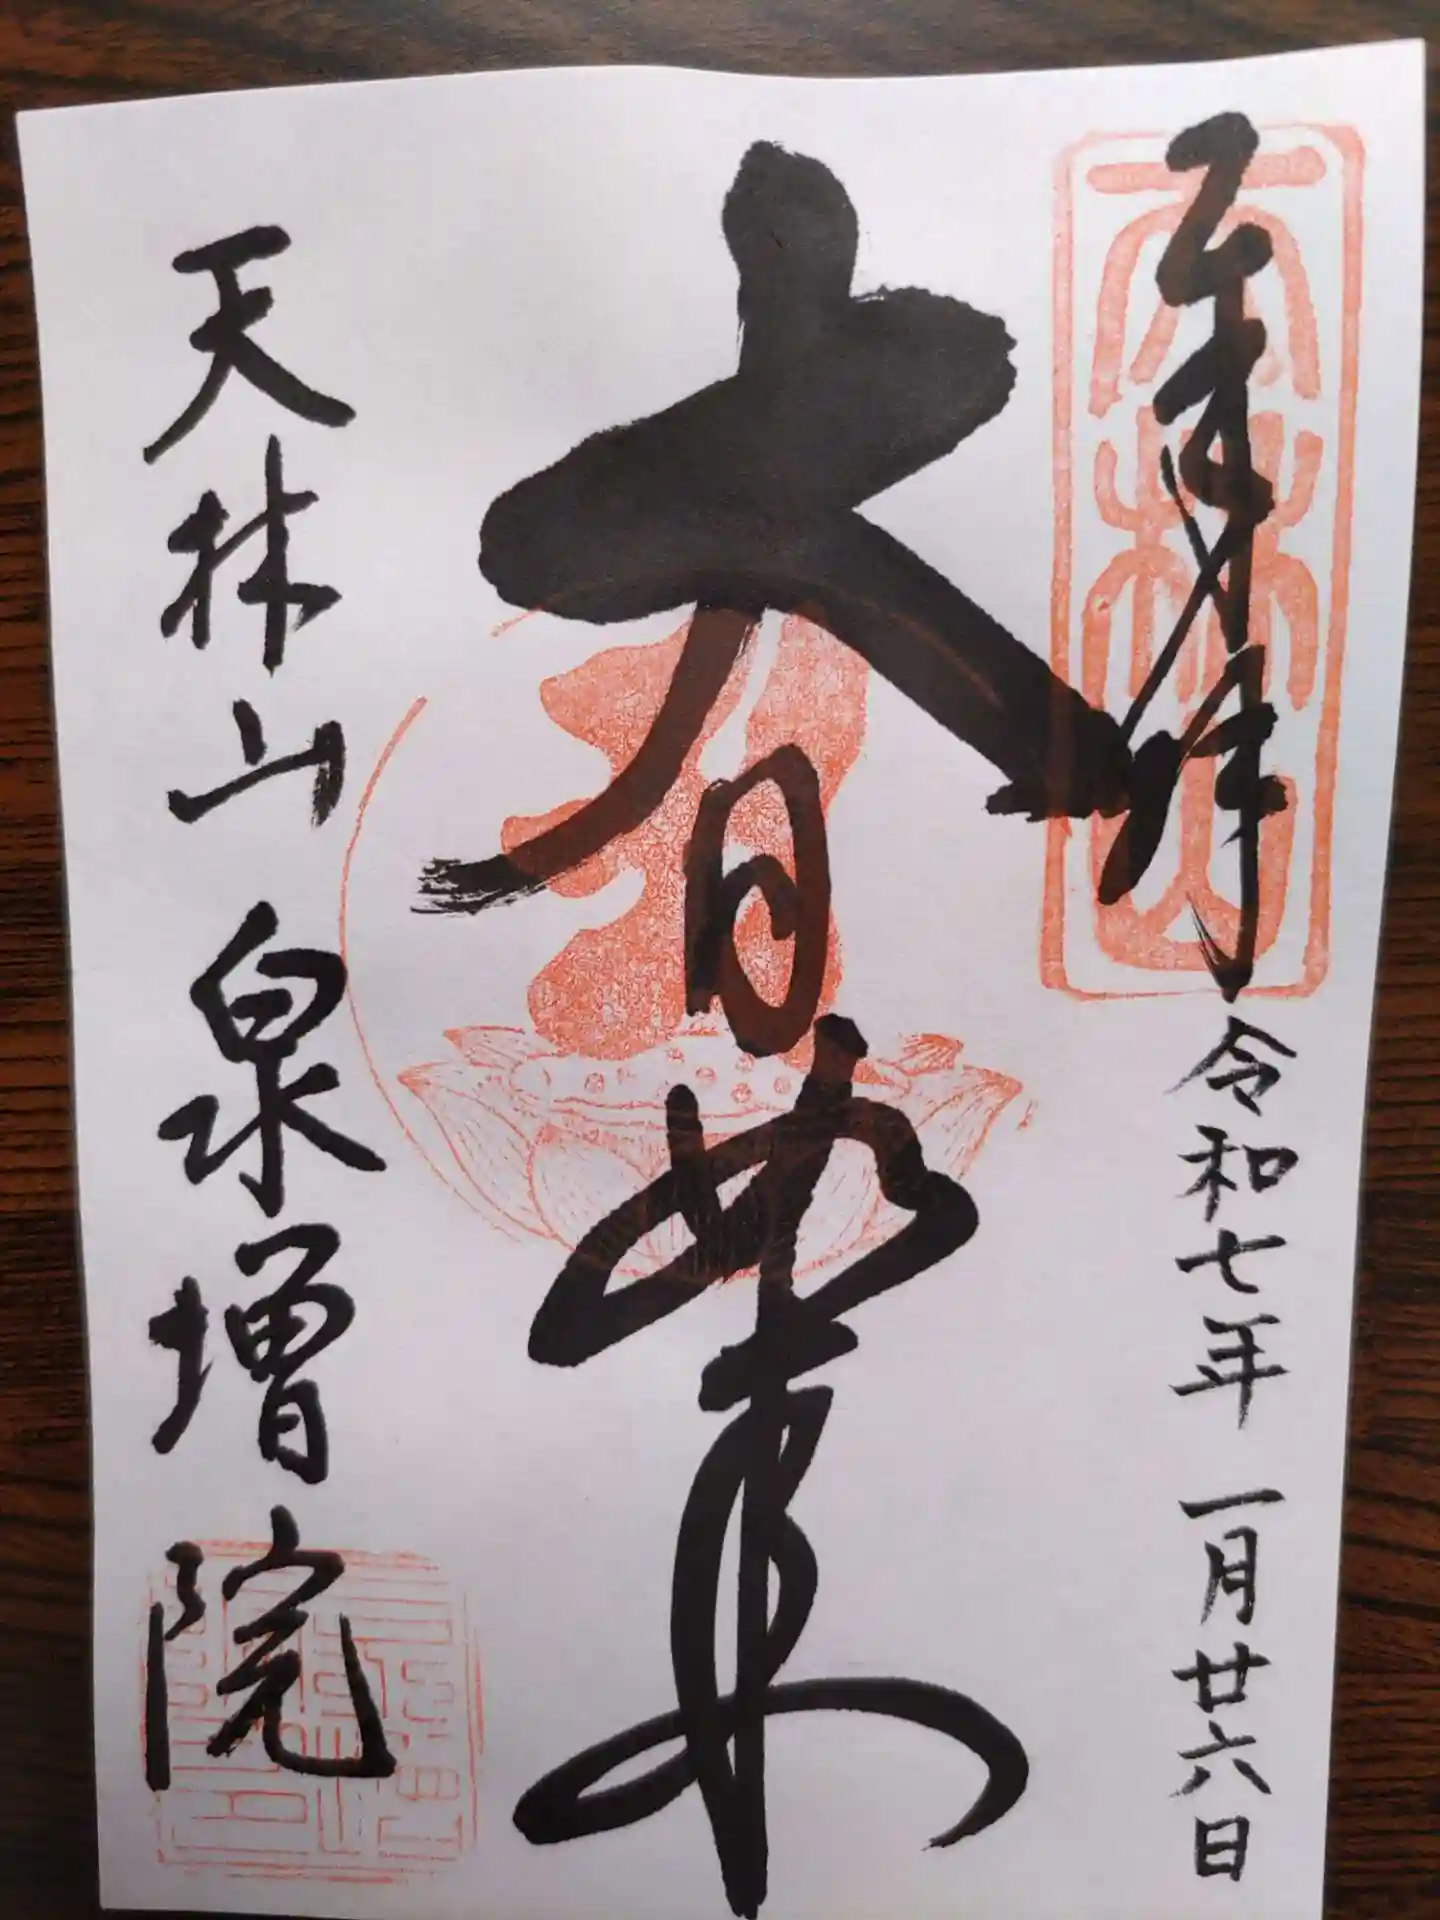 奉拝
令和七年一月廿六日
大日如来
天林山泉増院
天林山